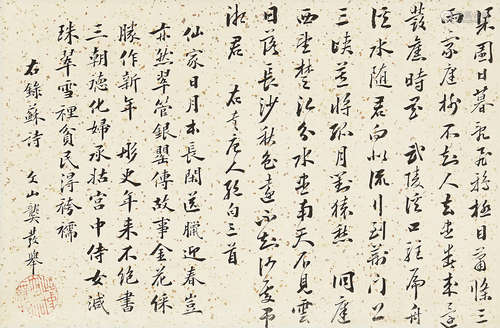 梁園日暮亂飛鴉極目蕭條三
兩家庭樹不知人去盡春來還
發舊時花 武陵溪口駐扁舟
溪水隨君向北流行到荊門上
三峽莫將孤月對猿愁 洞庭
西望楚江分水盡南天不見雲
日落長沙秋色遠不知何處弔
湘君 右書唐人絕句三首
仙家日月本長閑送臘迎春豈
亦然翠管銀罌傳故事金花綵
勝作新年 彤史年來不絕書
三朝德化婦承姑宮中侍女減
珠翠雪裡貧民得袴襦
右錄蘇詩 山龔